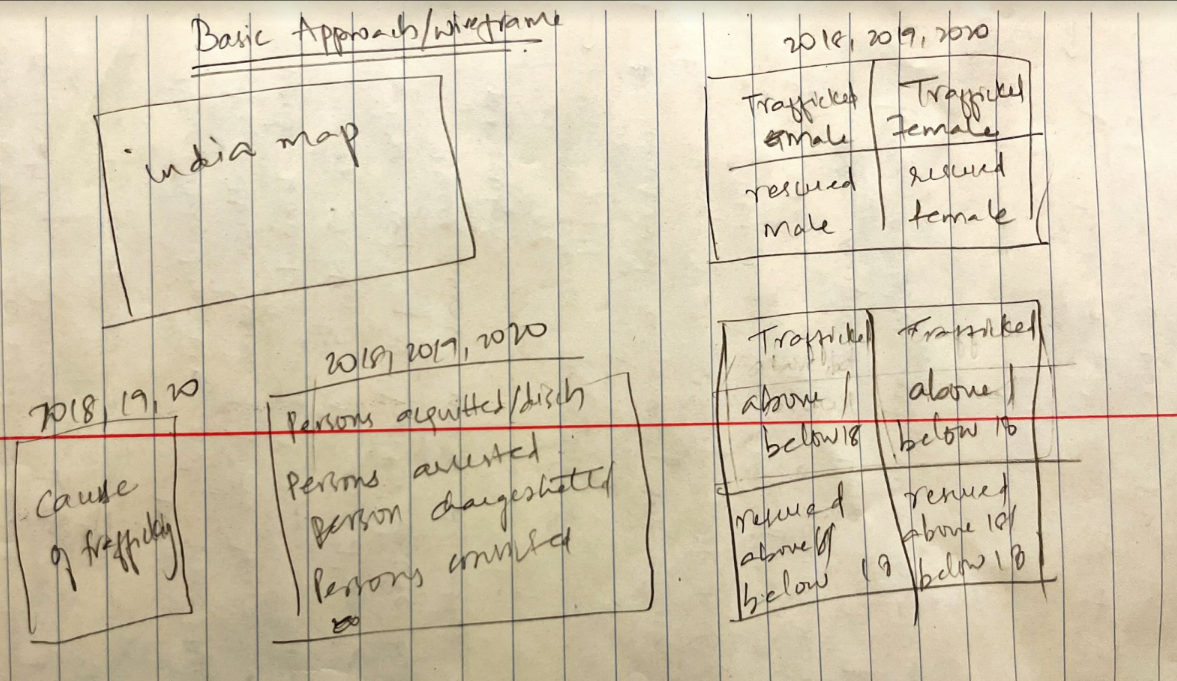 Basic Approach/wireframe
india map
2018, 2019, 2020
Trafficked
male
Trafficked
Female
rescued
male
rescued
female
2018, 19, 20
Cause
of trafficking
2018, 2019, 2020
Persons acquitted/disch
Persons arrested
person chargesheeted
Persons convicted
Trafficked
above /
below 18
Trafficked
above /
below 18
rescued
above /
below 18
rescued
above 18/
below 18